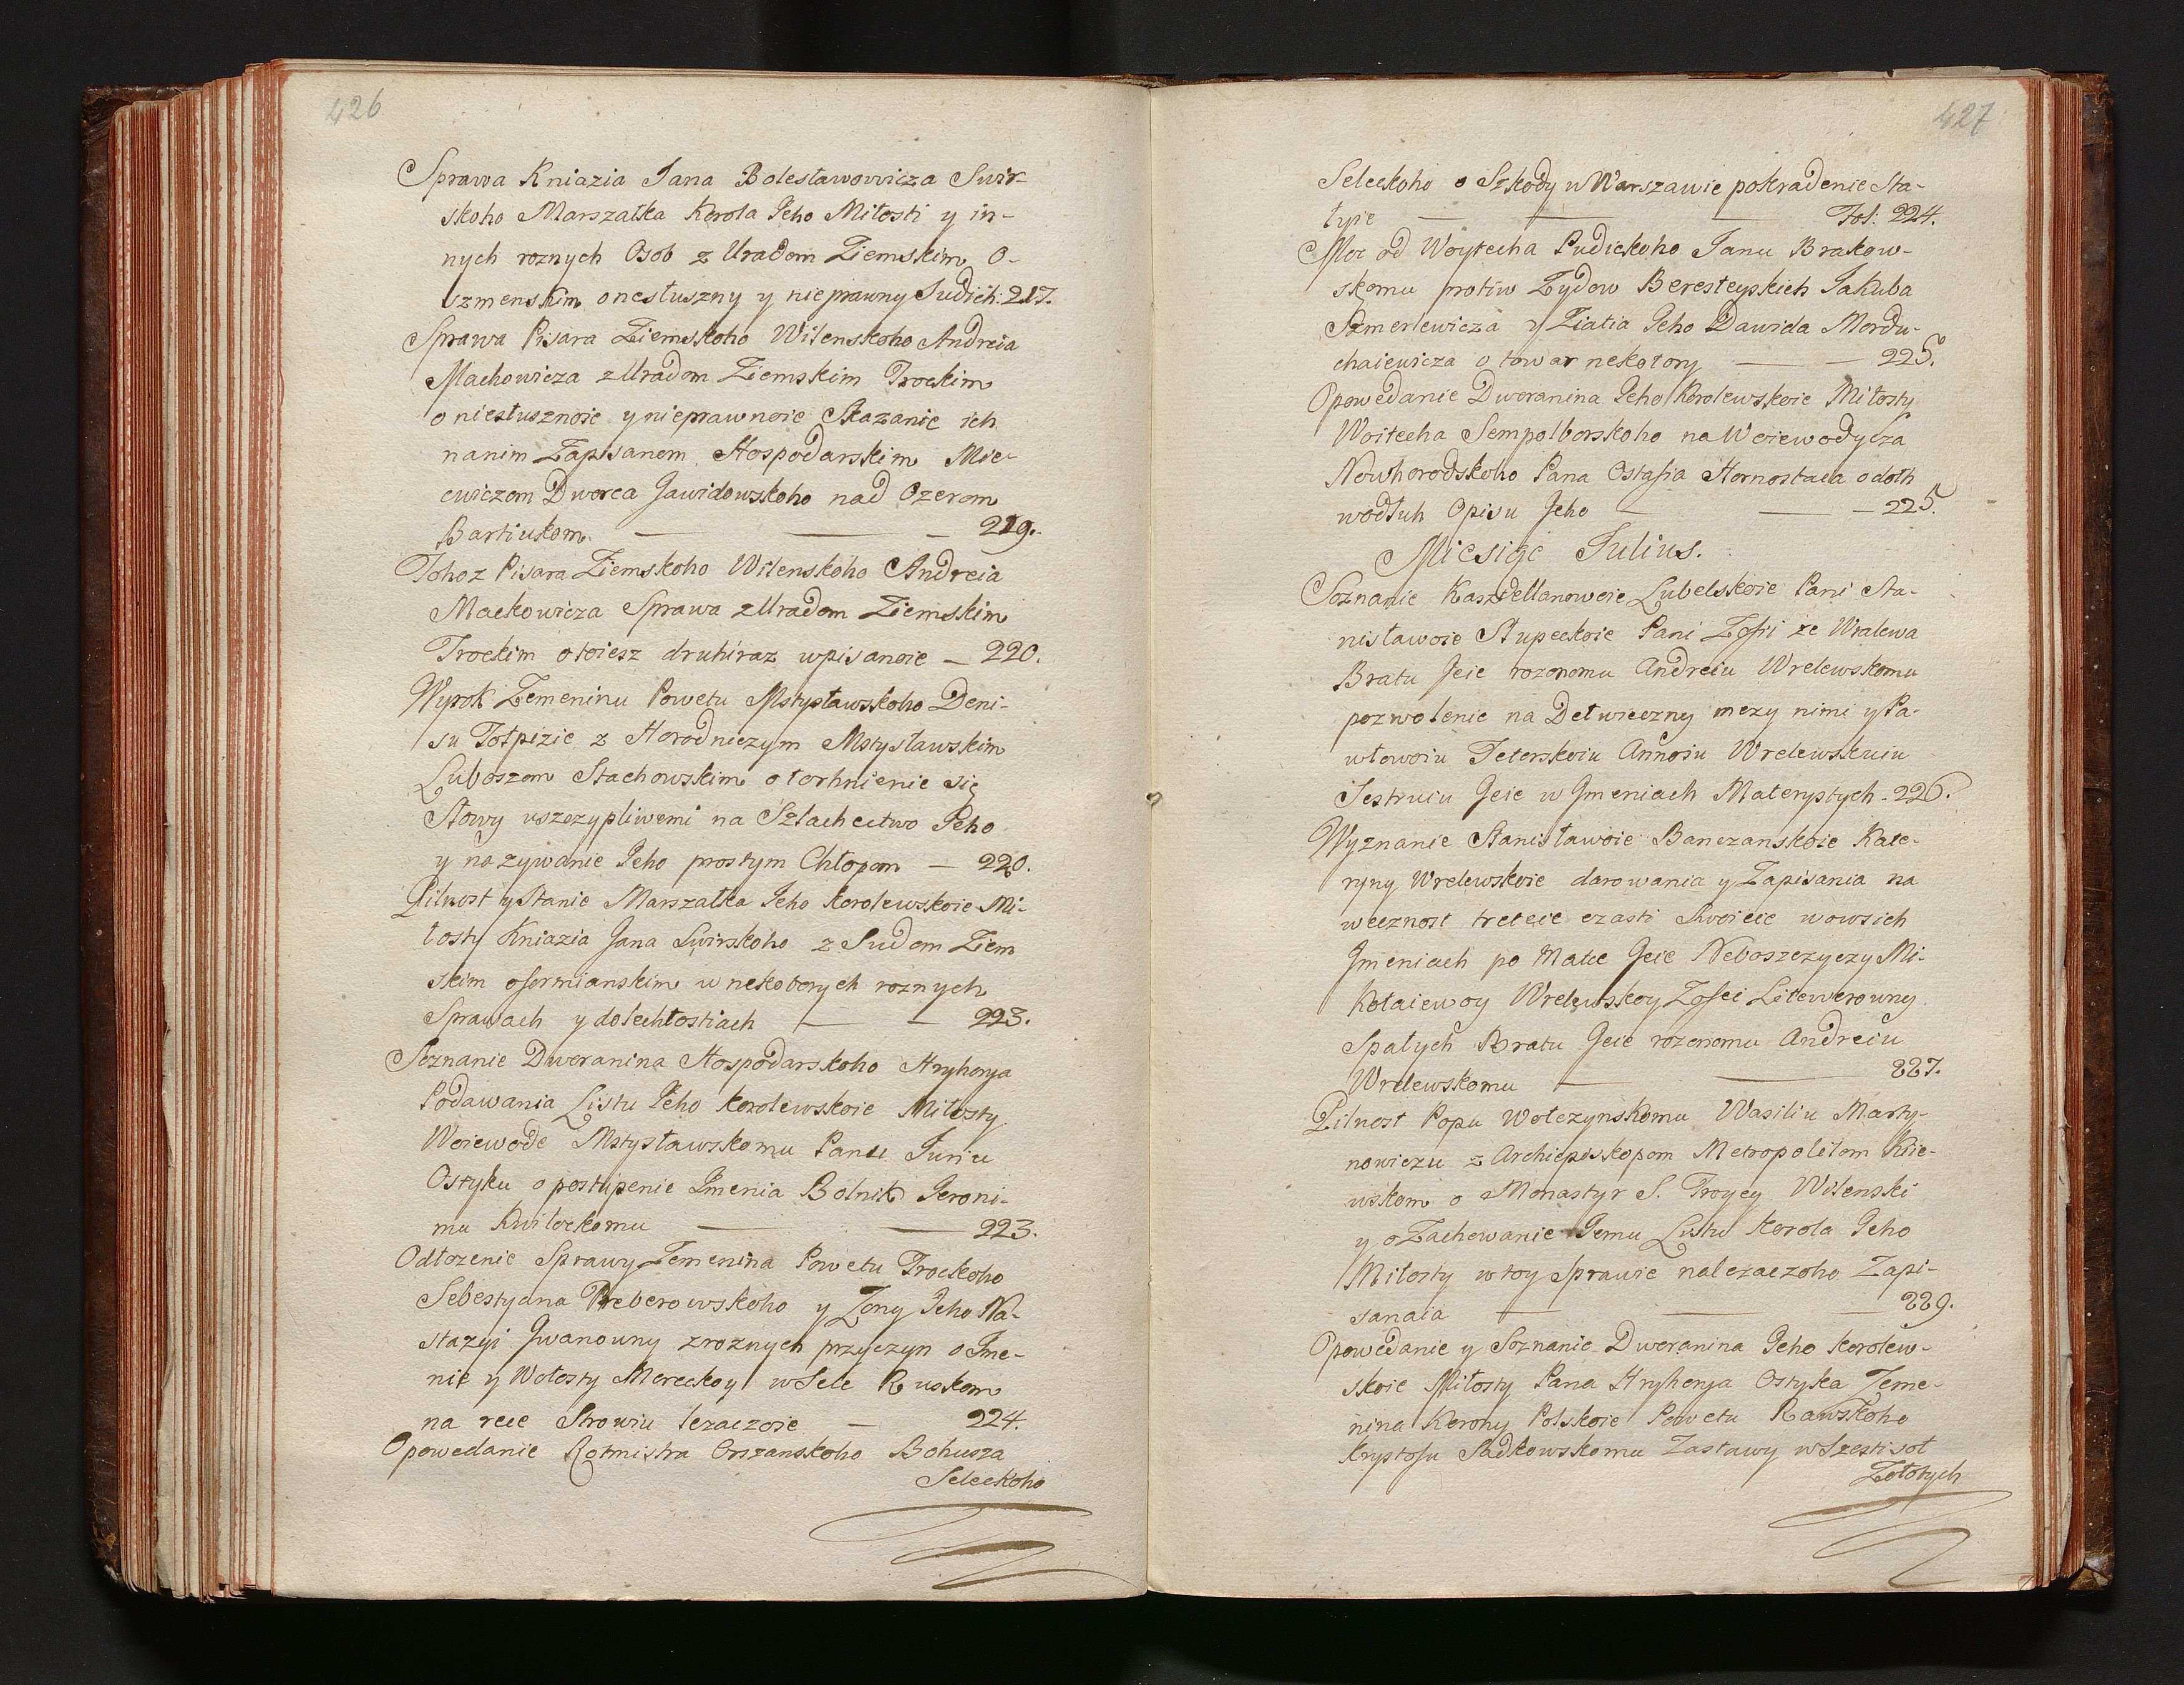 426
Sprawa Kniazia Jana Bolesławowicza Swir-
skoho Marszałka Korola Jeho Miłosti y in-
nych roznych Osob z Uradom Ziemskim O-
szmenskim onesłuszny y nieprawny Sud ich: 217.
Sprawa Pisara Ziemskoho Wilenskoho Andreia
Machowicza z Uradom Ziemskim Trockim
o niesłusznoie y nieprawnoie Skazanie ich
nanim Zapisanem Hospodarskim Mie-
cwiczom Dworca Gawidowskoho nad Ozerom
Bartiukom. — — — 219.
Tohoz Pisara Ziemskoho Wilenskoho Andreia
Mackowicza Sprawa z Uradom Ziemskim
Trockim otoiesz druhiraz wpisanoie — 220.
Wyrok Zemeninu Powetu Mstysławskoho Deni-
su Tołpizie z Horodniczym Mstysławskim
Luboszom Stachowskim o torhnienie się
Słowy uszczypliwemi na Szlachectwo Jeho
y nazywanie Jeho prostym Chłopom — 220.
Pilnost y Stanie Marszałka Jeho Korolewskoie Mi-
łosty Kniazia Jana Swirskoho z Sudom Ziem
skim oszmianskim w nekotorych roznych
Sprawach y dolechłostiach — — 223.
Seznanie Dworanina Hospodarskoho Hryhorya
Podawania Listu Jeho Korolewskoie Miłosty
Woiewode Mstysławskomu Panu Juriu
Ostyku o postupenie Jmenia Bolnik Jeroni-
mu Kwileckomu — — 223.
Odłozenie Sprawy Zemenina Powetu Trockoho
Sebestyana Preberowskoho y Zony Jeho Na-
stazyi Jwanowny zroznych przyczyn o Jme-
nie y Wołosty Mereckoy w Sele Ruskom
na rece Strowiu lezaczoie — 224.
Opowedanie Rotmistra Orszanskoho Bohusza
Seleckoho
427
Seleckoho o Szkody w Warszawie pokradenie Sta-
tyie — — — Fol: 224.
Moc od Woytecha Pudickoho Janu Brakow-
skomu protiw Zydow Beresteyskich Jakuba
Szmerlewicza y Ziatia Jeho Dawida Mordu-
chaiewicza o towar nekotory — — 225.
Opowedanie Dworanina Jeho Korolewskoie Miłosty
Woitecha Sempolborskoho na Woiewodycza
Nowhorodskoho Pana Ostafia Hornostaia o dołh
wodłuh Opisu Jeho — — — 225.
Miesiąc Julius.
Soznanie Kasztellanowoie Lubelskoie Pani Sta-
nisławoie Słupeckoie Pani Zofii ze Wralewa
Bratu Jeie rozonomu Andreiu Wrelewskomu
pozwolenie na Deł wieczny mezy nimi y Pa-
włowoiu Jeterskoiu Annoiu Wrelewskuiu
Sestruiu Jeie w Jmeniach Materystych - 226.
Wyznanie Stanisławoie Banczanskoie Kate-
ryny Wrelewskoie darowania y Zapisania na
wecznost treteie czasti Swoieie wowsich
Jmeniach po Matce Jeie Neboszczyczy Mi-
kołaiewoy Wrelewskoy Zofiei Litewerowny
Spałych Bratu Jeie rozonomu Andreiu
Wrelewskomu — — 227.
Pilnost Popu Wołczynskomu Wasiliu Marty-
nowiczu z Archiepiskopom Metropolitom Kiie-
wskom o Monastyr S. Troycy Wilenski
y o Zachowanie Jemu Listu Korola Jeho
Miłosty w toy Sprawie nalezaczoho Zapi-
sanaia — — — 229.
Opowedanie y Soznanie Dworanina Jeho Korolew-
skoie Miłosty Pana Hryhorya Ostyka Zeme-
nina Korony Polskoie Powetu Rawskoho
Krysztofu Sadkowskomu Zastawy w Szesti sot
Zołotych